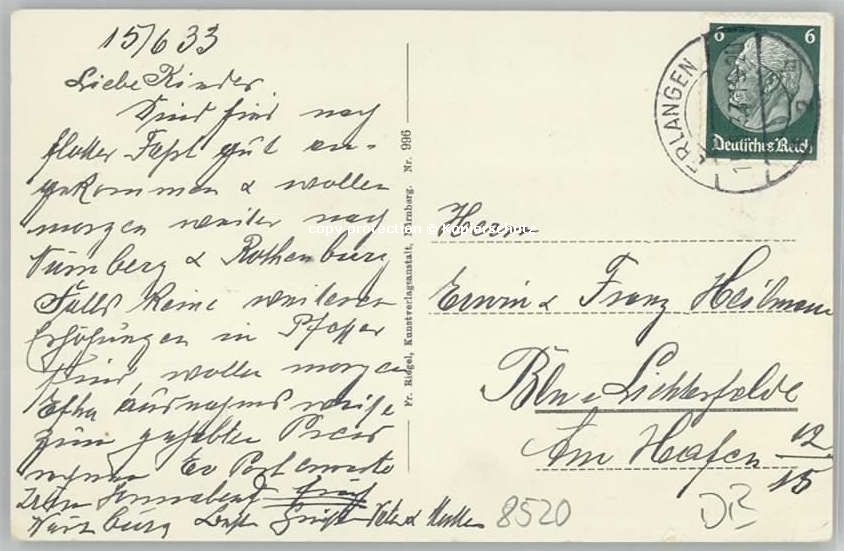 15/6 33
Liebe Kinder
Sind hier nach
flotter Fahrt gut an-
gekommen & wollen
morgen weiter nach
Nürnberg & Rothenburg
Falls keine weiteren
Erhöhungen in
sind, wollen morgen
ausnahmsweise
zum gehabten Preis
Ev Post erwarte
Sonnabend früh
Würzburg Vater & Mutter
Fr. Riegel, Kunstverlagsanstalt, Nürnberg. Nr. 996
copy protection © Kopierschutz
6 6
Deutsches Reich
ERLANGEN
2
Herrn
Erwin & Franz Heilmann
Bln. Lichterfelde
Am Hafen 12/15
8520
DB